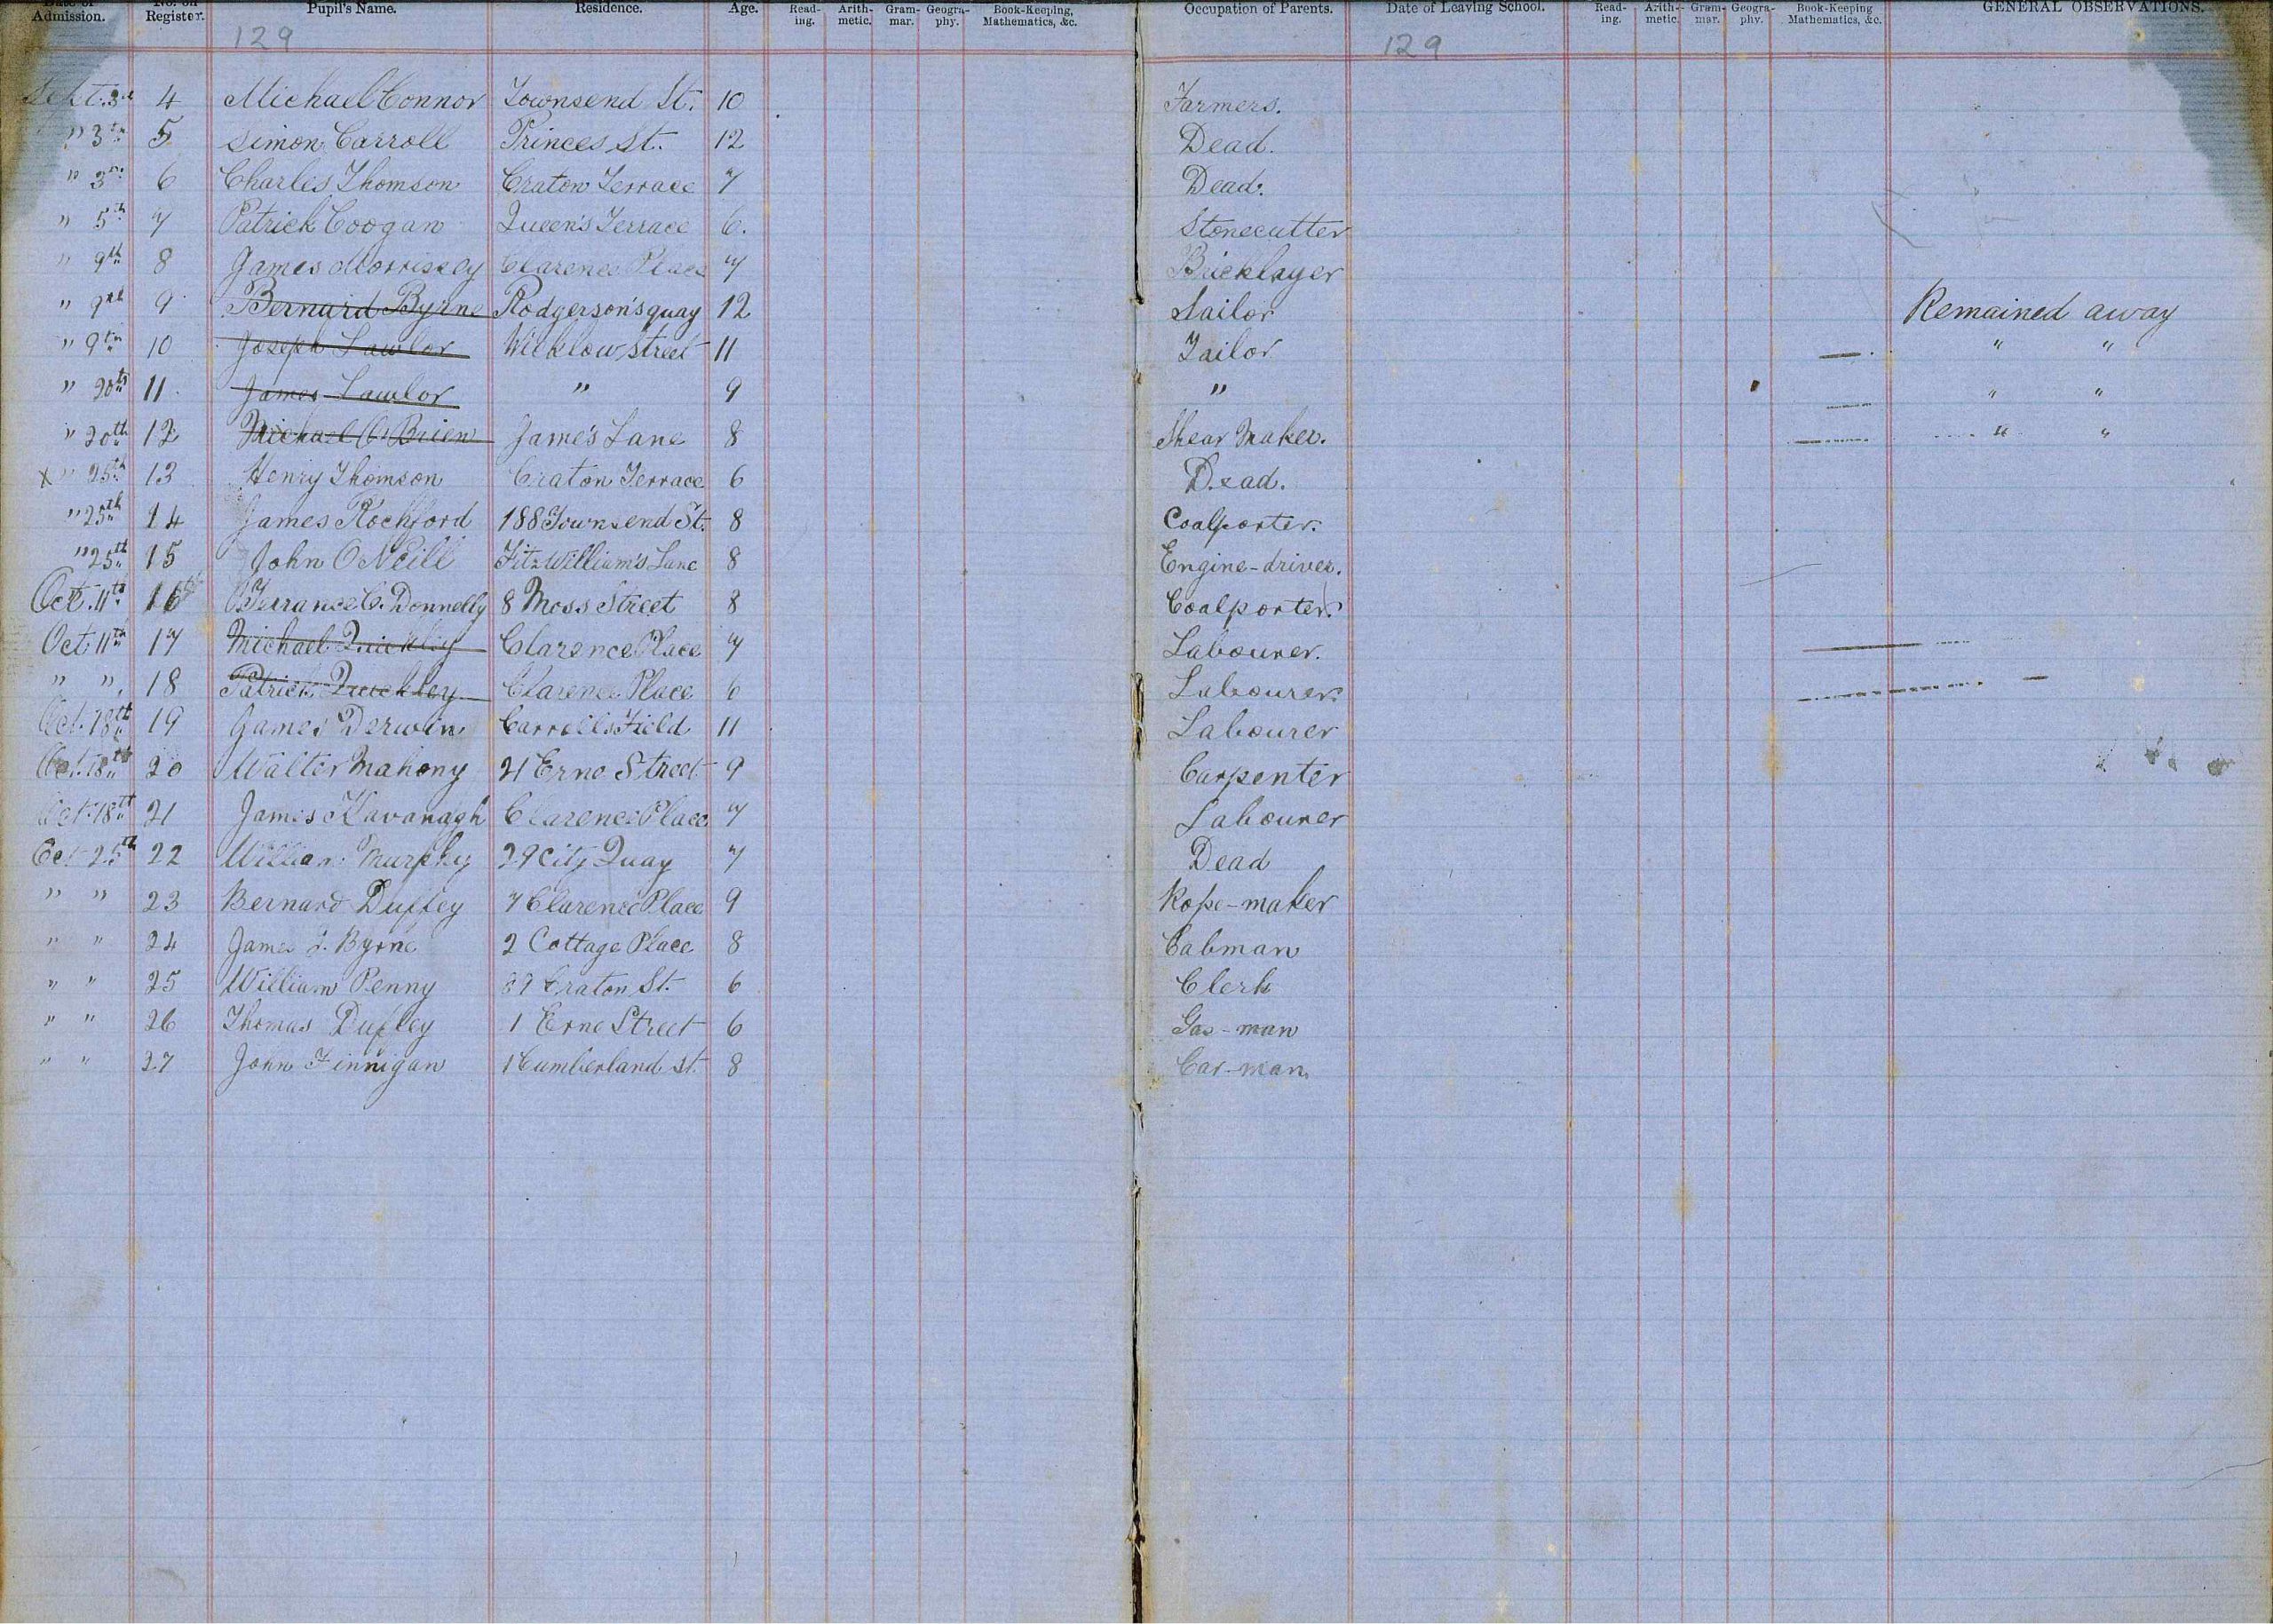 Date of Admission. No. on Register. Pupil's Name. Residence. Age. Reading. Arithmetic. Grammar. Geography. Book-Keeping, Mathematics, &c. Occupation of Parents. Date of Leaving School. Reading. Arithmetic. Grammar. Geography. Book-Keeping Mathematics, &c. GENERAL OBSERVATIONS.
129 129
Sept. 3rd 4 Michael Connor Townsend St. 10 Farmers.
" 3rd 5 Simon Carroll Princes St. 12 Dead.
" 3rd 6 Charles Thomson Craton Terrace 7 Dead.
" 5th 7 Patrick Coogan Queen's Terrace 6. Stonecutter
" 9th 8 James Morrissey Clarence Place 7 Bricklayer
" 9th 9 Bernard Byrne Rodgerson's quay 12 Sailor Remained away
" 9th 10 Joseph Lawlor Wicklow Street 11 Tailor " "
" 20th 11 James Lawlor " 9 " " "
" 20th 12 Michael O'Brien James's Lane 8 Shear Maker. " "
X " 25th 13 Henry Thomson Craton Terrace 6 Dead.
" 25th 14 James Rochford 188 Townsend St. 8 Coalporter.
" 25th 15 John O'Neill Fitzwilliam's Lane 8 Engine-driver.
Oct. 11th 16 Terrance C. Donnelly 8 Moss Street 8 Coalporter.
Oct. 11th 17 Michael Quickley Clarence Place 7 Labourer.
" " 18 Patrick Quickley Clarence Place 6 Labourer.
Oct. 18th 19 James Derwin Carroll's Field 11 Labourer
Oct. 18th 20 Walter Mahony 21 Erne Street 9 Carpenter
Oct. 18th 21 James Kavanagh Clarence Place 7 Labourer
Oct 25th 22 William Murphy 29 City Quay 7 Dead
" " 23 Bernard Duffey 7 Clarence Place 9 Rope-maker
" " 24 James J. Byrne 2 Cottage Place 8 Cabman
" " 25 William Penny Craton St. 6 Clerk
" " 26 Thomas Duffey 1 Erne Street 6 Gas-man
" " 27 John Finnigan 1 Cumberland St. 8 Car-man